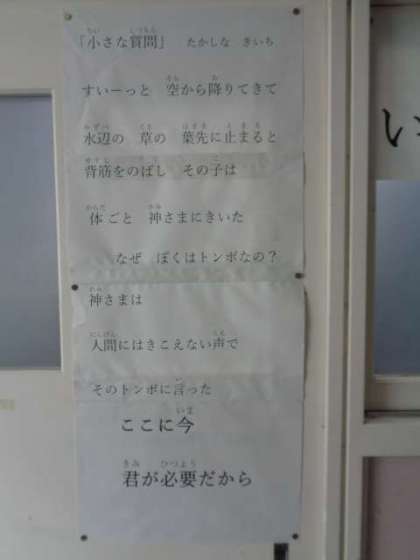 「小さな質問」 たかしな きいち
すいーっと 空から降りてきて
水辺の 草の 葉先に止まると
背筋をのばし その子は
体ごと 神さまにきいた
なぜ ぼくはトンボなの？
神さまは
人間にはきこえない声で
そのトンボに言った
ここに今
君が必要だから
い